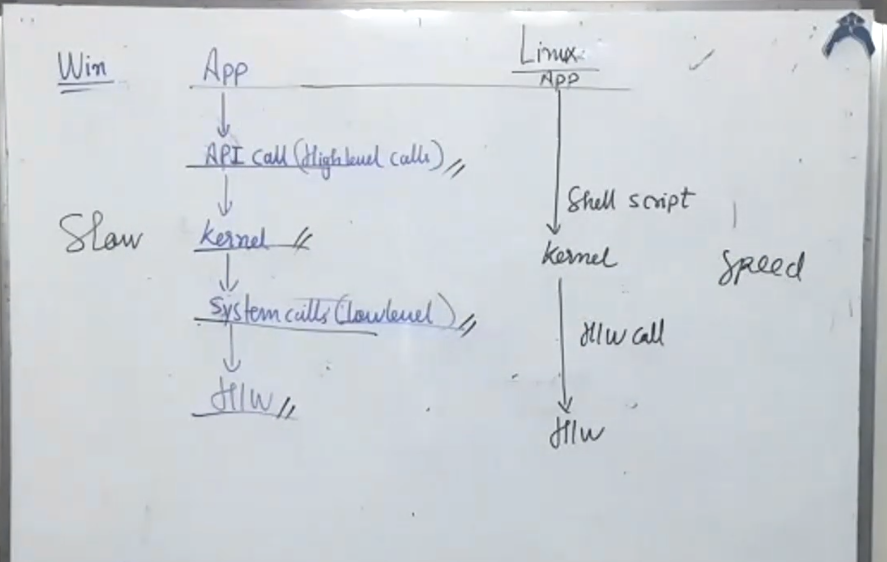 Win
App
API call (High level calls)
Slow
Kernel
System calls (low level)
H/W
Linux
App
Shell script
Kernel
Speed
H/W call
H/W